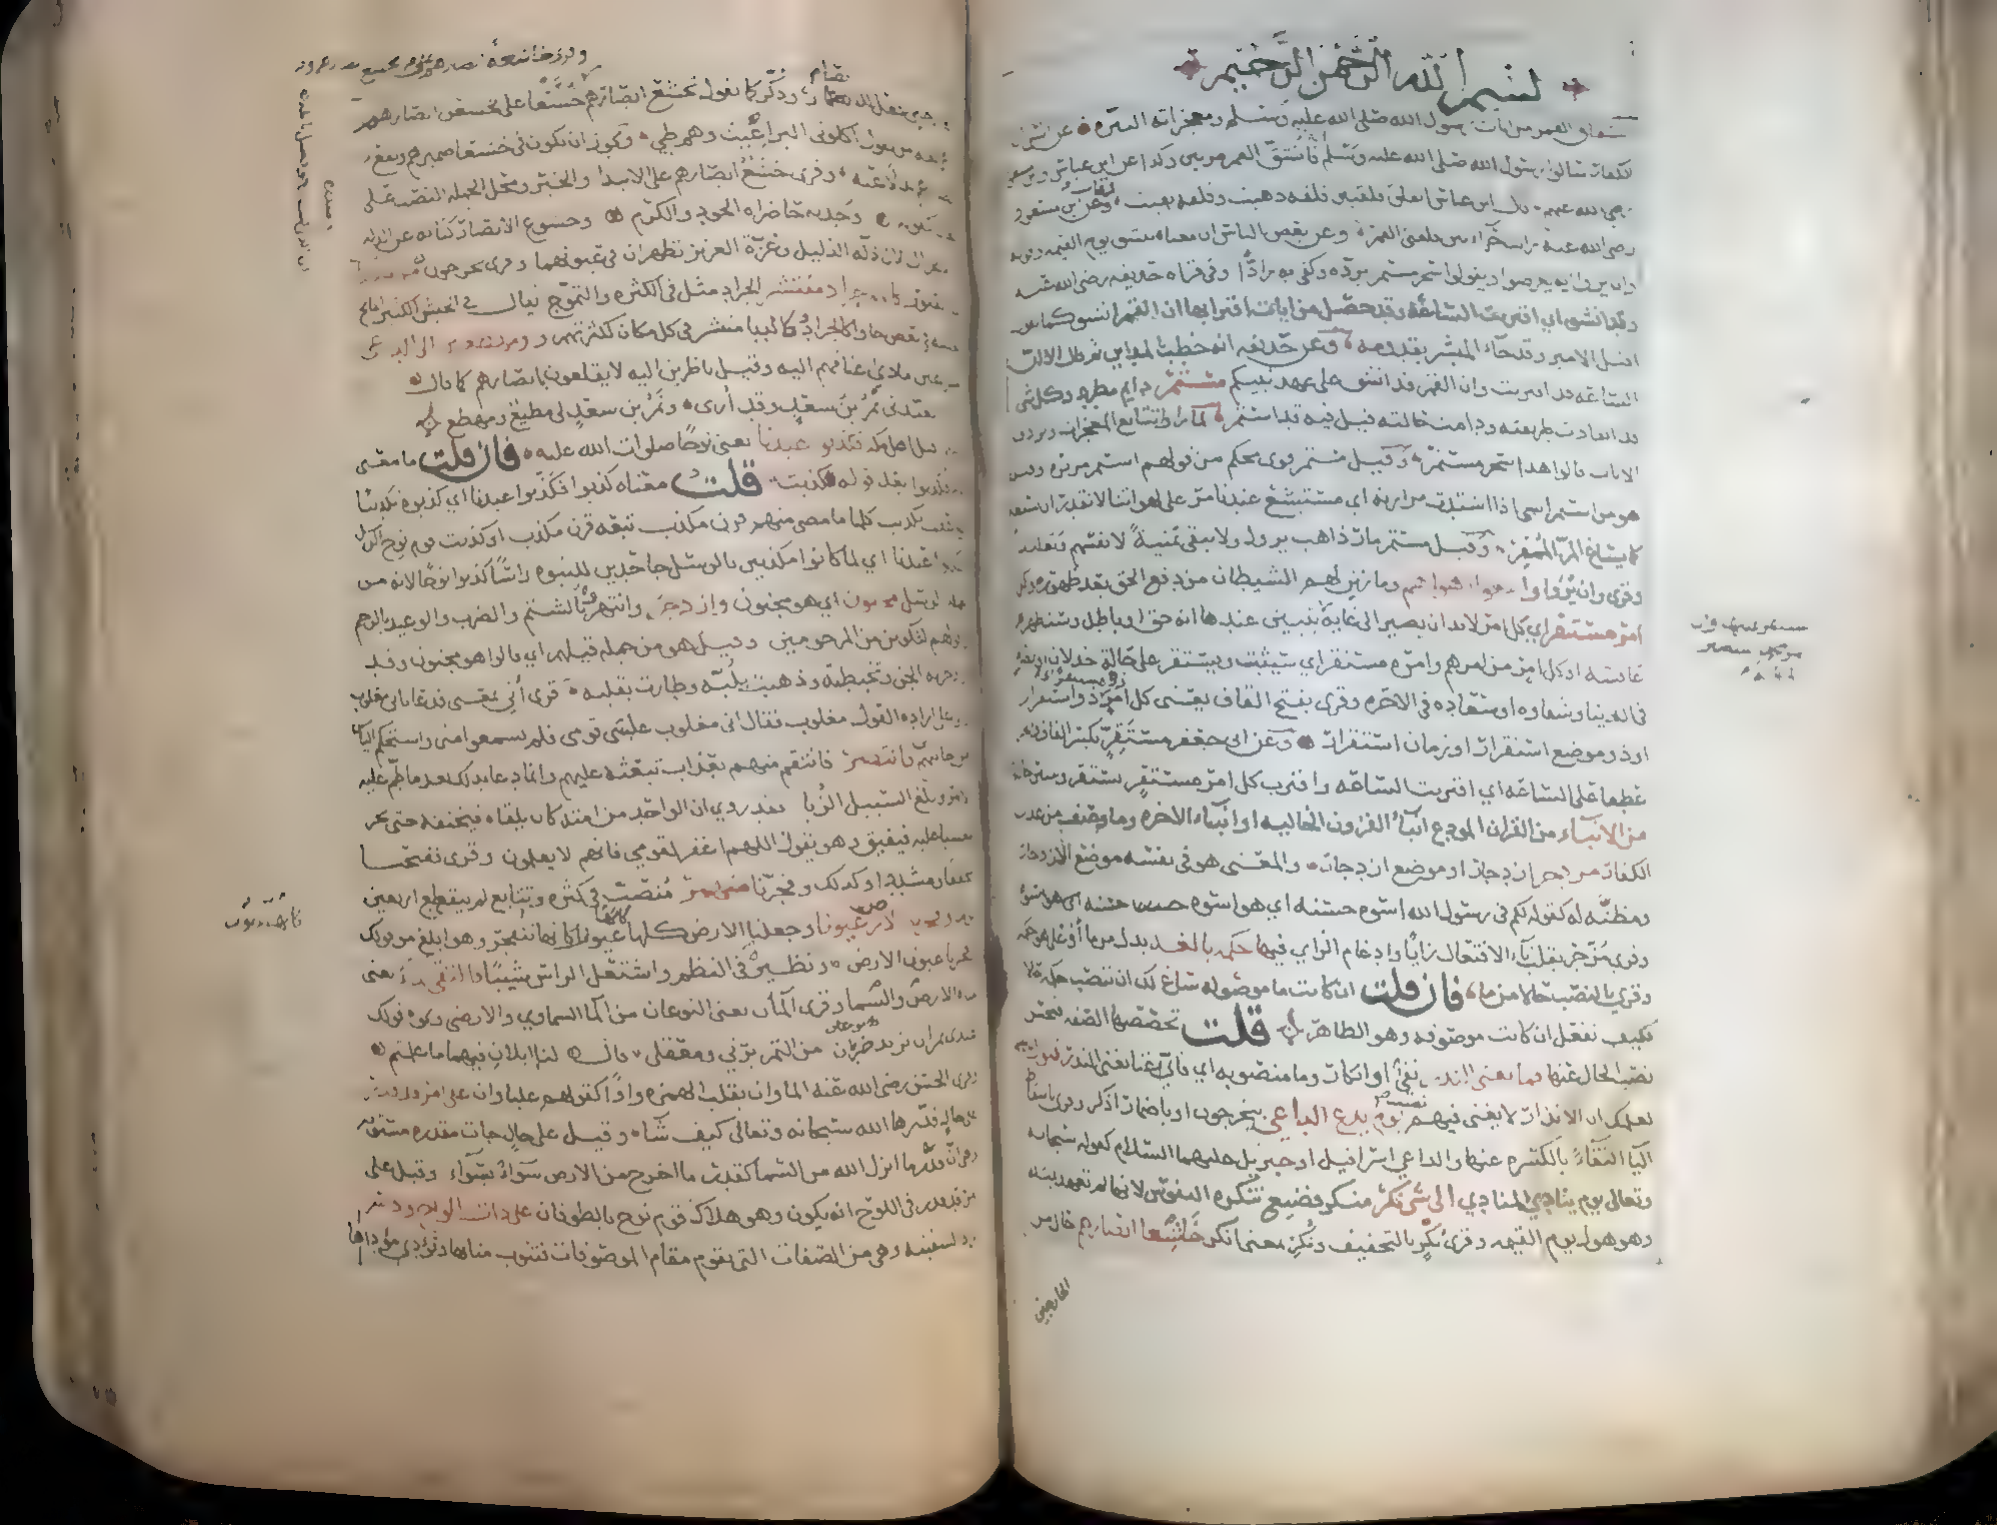 بسم الله الرحمن الرحيم
انشقاق القمر من ايات رسول الله صلى الله عليه وسلم ومعجزاته النيره عن انس ان
الكفار سالوا رسول الله صلى الله عليه وسلم فانشق القمر مرتين وكذا عن ابن عباس وابن مسعود
رضي الله عنهم قال ابن عباس انفلق فلقتين فلقه ذهبت وفلقه بقيت وعن ابن مسعود
رضي الله عنه رايت حراء بين فلقتي القمر وعن بعض الناس ان معناه ينشق يوم القيمه وقوله
وان يروا ايه يعرضوا ويقولوا سحر مستمر يرده وكفى به رادا وفي قراه حذيفه رضي الله عنه
وقد انشق اي اقتربت الساعه وقد حصل من ايات اقترابها ان القمر انشق كما تقول
اقبل الامير وقد جاء المبشر بقدومه وعن حذيفه انه خطب بالمداين ثم قال الا ان
الساعه قد اقتربت وان القمر قد انشق على عهد نبيكم مستمر دايم مطرد وكل شي
قد انقادت طريقته ودامت حالته قيل فيه قد استمر لما راوا تتابع المعجزات وترادف
الايات قالوا هذا سحر مستمر وقيل مستمر قوي محكم من قولهم استمر مريره وقيل
هو من استمر الشي اذا اشتدت مرارته اي مستبشع عندنا مر على لهواتنا لا نقدر ان نسيغه
كما يساغ المر الممقر وقيل مستمر مار ذاهب يزول ولا يبقى تمنية لانفسهم وتعليلا
وقرى وان يروا واتبعوا اهواءهم وما زين لهم الشيطان من دفع الحق بعد ظهوره وكل
امر مستقر اي كل امر لا بد ان يصير الى غاية يتبين عندها انه حق او باطل وستظهر
عاقبته او كل امر من امرهم وامره مستقر اي سيثبت ويستقر على حالة خذلان او نصره
في الدنيا وشقاوه او سعاده في الاخره وقرى بفتح القاف يعني كل امر ذو استقرار
او ذو موضع استقرار او زمان استقرار وعن ابي جعفر مستقر بكسر القاف
عطفا على الساعه اي اقتربت الساعه واقترب كل امر مستقر يستقر ويتبين حاله
من الانباء من القران المودع انباء القرون الخاليه او انباء الاخره وما وصف من عذاب
الكفار مزدجر ازدجار او موضع ازدجار والمعنى هو في نفسه موضع الازدجار
ومظنه له كقوله لكم في رسول الله اسوه حسنه اي هو اسوه
وقرى مزجر بقلب تاء الافتعال زايا وادغام الزاي فيها حكمه بالغه بدل من ما او على هو حكمه
وقري بالنصب حالا من ما فان قلت ان كانت ما موصوله ساغ لك ان تنصب حكمة حالا
فكيف تفعل ان كانت موصوفه وهو الظاهر قلت تخصصها الصفه فيحسن
نصب الحال عنها فما تغني النذر نفي او انكار وما منصوبه اي فاي غنا تغني النذر فتول عنهم
لعلمك ان الانذار لا يغني فيهم نصب يوم يدع الداعي بيخرجون او باضمار اذكر وقرى باسقاط
اليا اكتفاء بالكسره عنها والداعي اسرافيل او جبريل عليهما السلام كقوله سبحانه
وتعالى يوم ينادي المنادي الى شي نكر منكر فضيع تنكره النفوس لانها لم تعهد بمثله
وهو هول يوم القيمه وقرى نكر بالتخفيف ونكر بمعنى انكر خاشعا ابصارهم حال من
الخارجين
وقرى خاشعة
فعل الابصار وذكر كما تقول يخشع ابصارهم خشعا على يخشعن ابصارهم
من يقول اكلوني البراغيث وهم طي ويجوز ان يكون في خشعا ضميرهم وتقع
وقرى خشع ابصارهم على الابتدا والخبر ومحل الجمله النصب على
وجدته حاضراه الجود والكرم وخشوع الابصار كنايه عن الذله
لان ذلة الذليل وعزة العزيز تظهران في عيونهما وقرى يخرجون
جراد منتشر الجراد مثل في الكثره والتموج يقال في الجيش الكثير المايج
بعضه في بعض جاوا كالجراد وكالدبا منتشر في كل مكان لكثرتهم الى الداعي
مسرعين مادي اعناقهم اليه وقيل ناظرين اليه لا يقلعون بابصارهم كما قال
تعبدني نمر بن سعد وقد ارى ونمر بن سعد لي مطيع ومهطع
قبل اهل مكه فكذبوا عبدنا يعني نوحا صلوات الله عليه فان قلت ما معنى
فكذبوا بعد قوله كذبت قلت معناه كذبوا فكذبوا عبدنا اي كذبوه تكذيبا
على عقب تكذيب كلما مضى منهم قرن مكذب تبعه قرن مكذب او كذبت قوم نوح الرسل
فكذبوا عبدنا اي لما كانوا مكذبين بالرسل جاحدين للنبوه راسا كذبوا نوحا لانه من
جمله الرسل مجنون اي هو مجنون وازدجر وانتهروه بالشتم والضرب والوعيد بالرجم
في قولهم لتكونن من المرجومين وقيل هو من جمله قيلهم اي قالوا هو مجنون وقد
ازدجرته الجن وتخبطته وذهبت بلبه وطارت بقلبه قرى اني بمعنى فدعا باني مغلوب
وعلى اراده القول فقال اني مغلوب غلبني قومي فلم يسمعوا مني واستحكم الياس
من اجابتهم فانتصر فانتقم منهم بعذاب تبعثه عليهم وانما دعا بذلك بعد ما طم عليه
الامر وبلغ السيل الزبا فقد روي ان الواحد من امته كان يلقاه فيخنقه حتى يخر
مغشيا عليه فيفيق وهو يقول اللهم اغفر لقومي فانهم لا يعلمون وقرى ففتحنا
مخففا ومشددا وكذلك وفجرنا منهمر منصب في كثره وتتابع لم ينقطع اربعين
يوما وفجرنا الارض عيونا وجعلنا الارض كلها كانها عيون تنفجر وهو ابلغ من قولك
فجرنا عيون الارض ونظيره في النظم واشتعل الراس شيبا فالتقى الماء يعني
مياه الارض والسما وقرى الماآن يعني النوعان من الما السماوي والارضي ونحوه قولك
عندي تمران تريد ضربان من التمر برني ومعقلي قال لنا ابلان فيهما ما علمتم
وقرى الحسن رضي الله عنه الماوان بقلب الهمزه واوا كقولهم علباوان على امر قد قدر
على حال قدرها الله سبحانه وتعالى كيف شاه وقيل على حال جات مقدره مستويه
وهي ان قدر ما انزل الله من السما كقدر ما اخرج من الارض سواء بسواء وقيل على
امر قد قدر في اللوح انه يكون وهو هلاك قوم نوح بالطوفان على ذات الواح ودسر
اراد السفينه وهي من الصفات التي تقوم مقام الموصوفات فتنوب منابها وتؤدي مؤداها